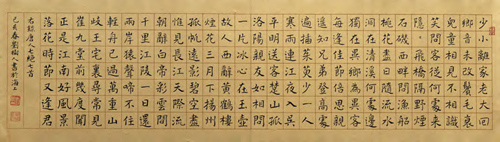 少小離家老大回
鄉音未改鬢毛衰
兒童相見不相識
笑問客從何處來
隱隱飛橋隔野煙
石磯西畔問漁船
桃花盡日隨流水
洞在清溪何處邊
獨在異鄉為異客
每逢佳節倍思親
遙知兄弟登高處
遍插茱萸少一人
寒雨連江夜入吳
平明送客楚山孤
洛陽親友如相問
一片冰心在玉壺
故人西辭黃鶴樓
煙花三月下揚州
孤帆遠影碧空盡
惟見長江天際流
朝辭白帝彩雲間
千里江陵一日還
兩岸猿聲啼不住
輕舟已過萬重山
岐王宅裏尋常見
崔九堂前幾度聞
正是江南好風景
落花時節又逢君
右録唐人七絕七首
己亥春